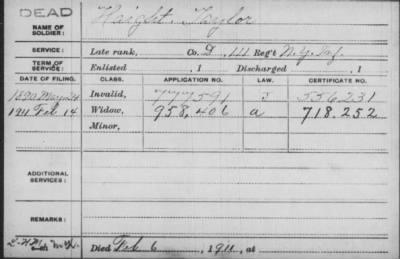 DEAD
NAME OF SOLDIER: Haight, Taylor
SERVICE: Late rank, Co. D, 111 Reg't N.Y. Inf.
TERM OF SERVICE: Enlisted , 1 Discharged , 1
DATE OF FILING. CLASS. APPLICATION NO. LAW. CERTIFICATE NO.
1890 May 24 Invalid, 777591 J 556231
1911 Feb 14 Widow, 958,406 a 718.252
Minor,
ADDITIONAL SERVICES:
REMARKS:
Died Feb 6, 1911, at